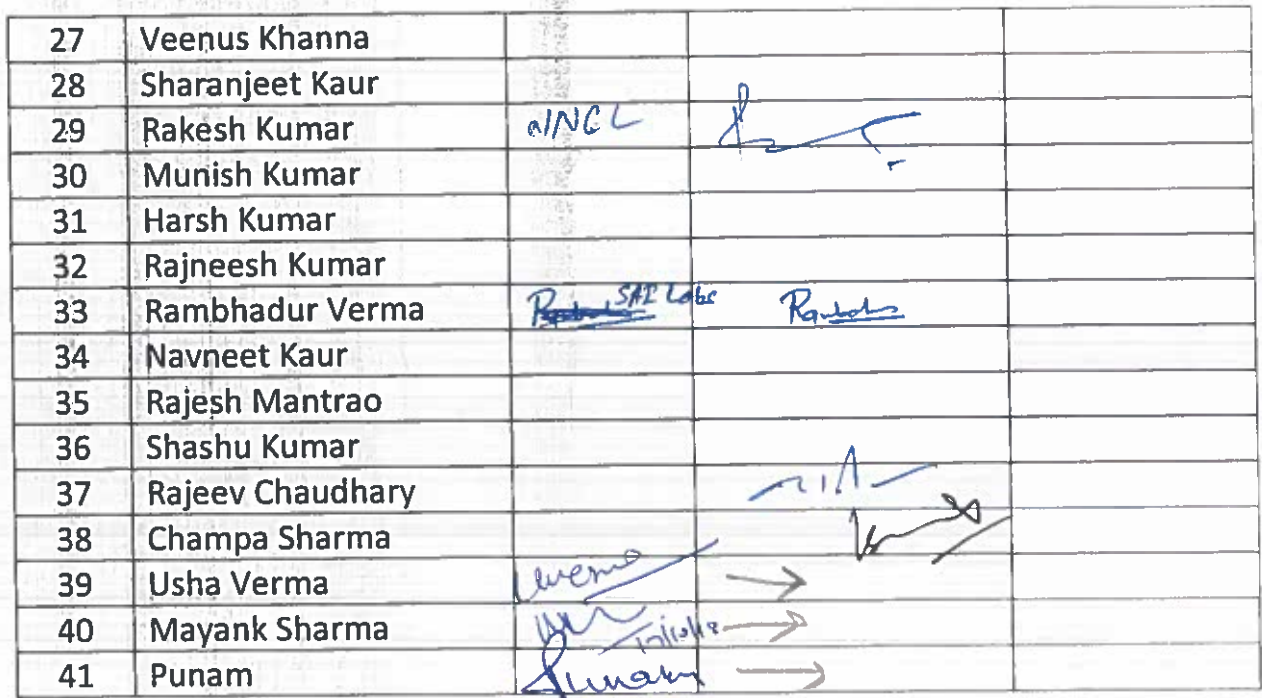 27 Veenus Khanna
28 Sharanjeet Kaur
29 Rakesh Kumar
30 Munish Kumar
31 Harsh Kumar
32 Rajneesh Kumar
33 Rambhadur Verma SAI Labs
34 Navneet Kaur
35 Rajesh Mantrao
36 Shashu Kumar
37 Rajeev Chaudhary
38 Champa Sharma
39 Usha Verma
40 Mayank Sharma
41 Punam